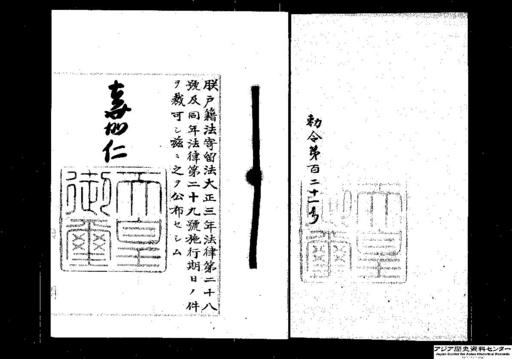 勅令第百二十一号
朕戸籍法寄留法大正三年法律第二十八
號及同年法律第二十九號施行期日ノ件
ヲ裁可シ茲ニ之ヲ公布セシム
嘉仁
天皇
御璽
アジア歴史資料センター
Japan Center for Asian Historical Records